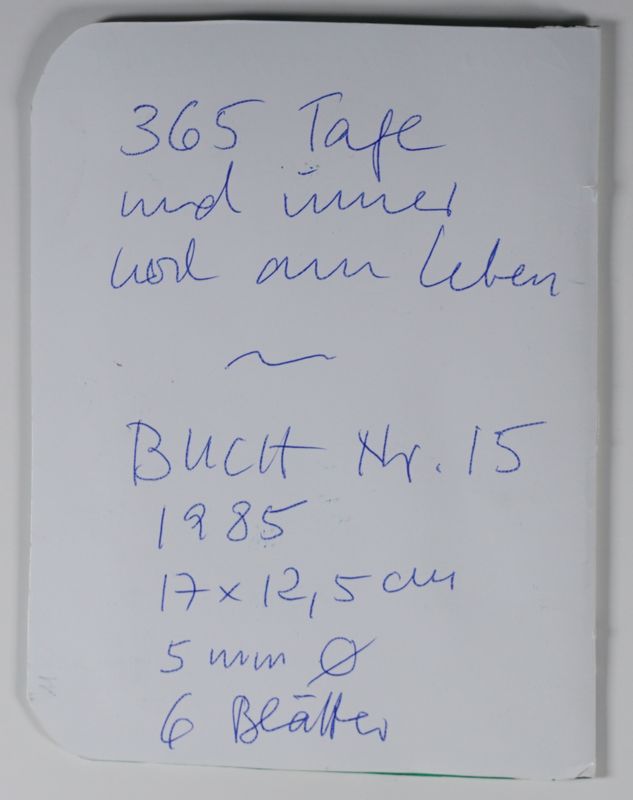 365 Tage
und immer
noch am Leben
~
BUCH Nr. 15
1985
17 x 12,5 cm
5 mm Ø
6 Blätter